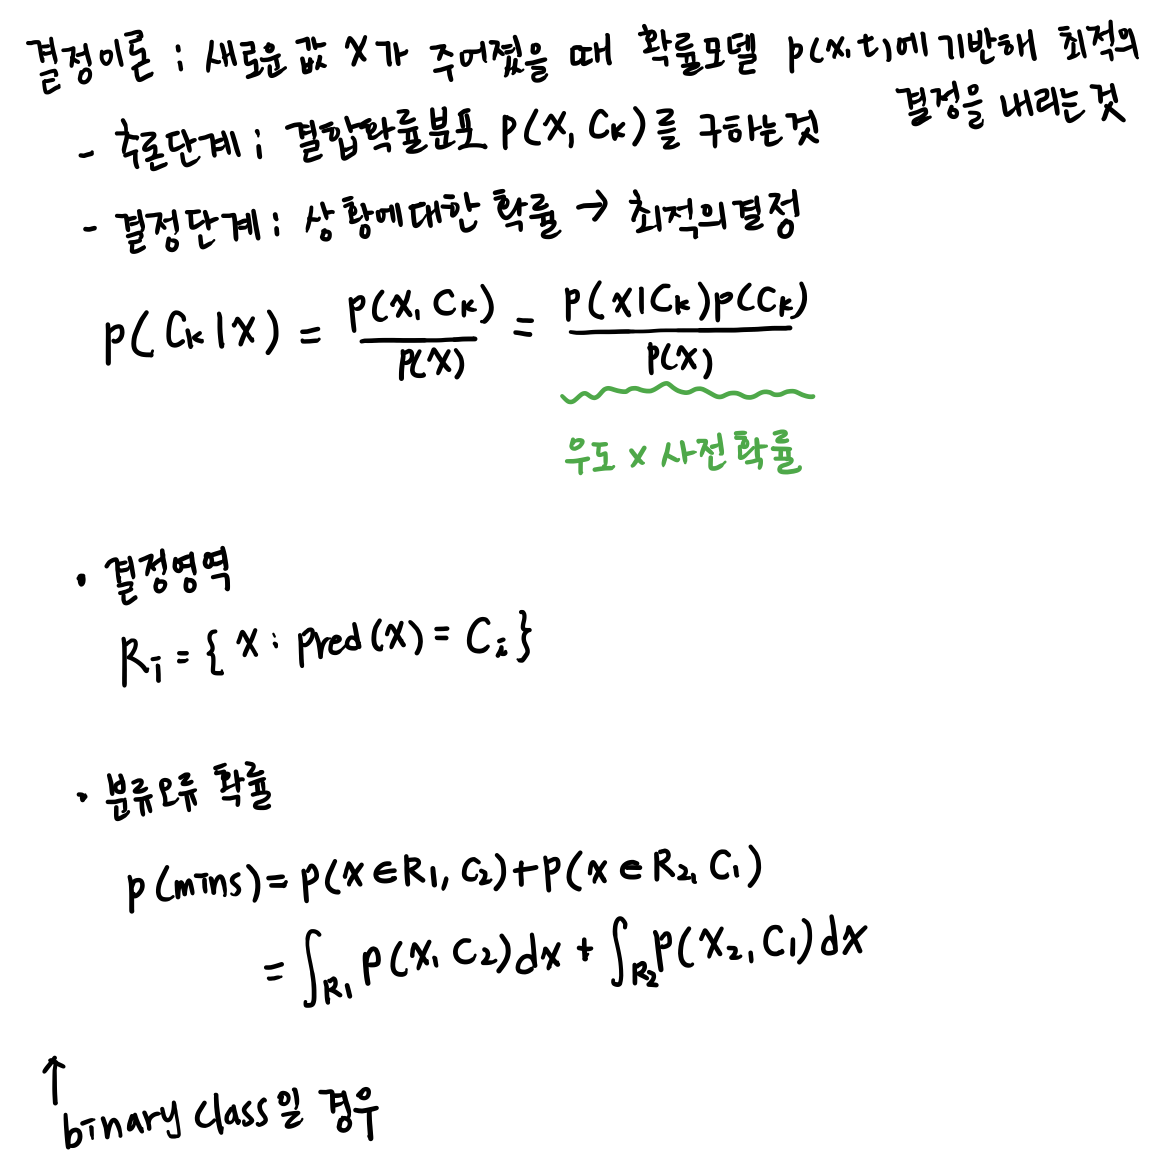 결정이론 : 새로운 값 x가 주어졌을 때 확률모델 p(x,t)에 기반해 최적의
결정을 내리는것
- 추론단계 : 결합확률분포 p(x, Ck)를 구하는것
- 결정단계 : 상황에대한 확률 → 최적의결정
p(Ck|x) = p(x, Ck) / p(x) = p(x|Ck)p(Ck) / p(x)
우도 x 사전확률
• 결정영역
Ri = { x : pred(x) = Ci }
• 분류오류 확률
p(mins) = p(x ∈ R1, C2) + p(x ∈ R2, C1)
= ∫R1 p(x, C2)dx + ∫R2 p(x2, C1)dx
↑
binary class일 경우